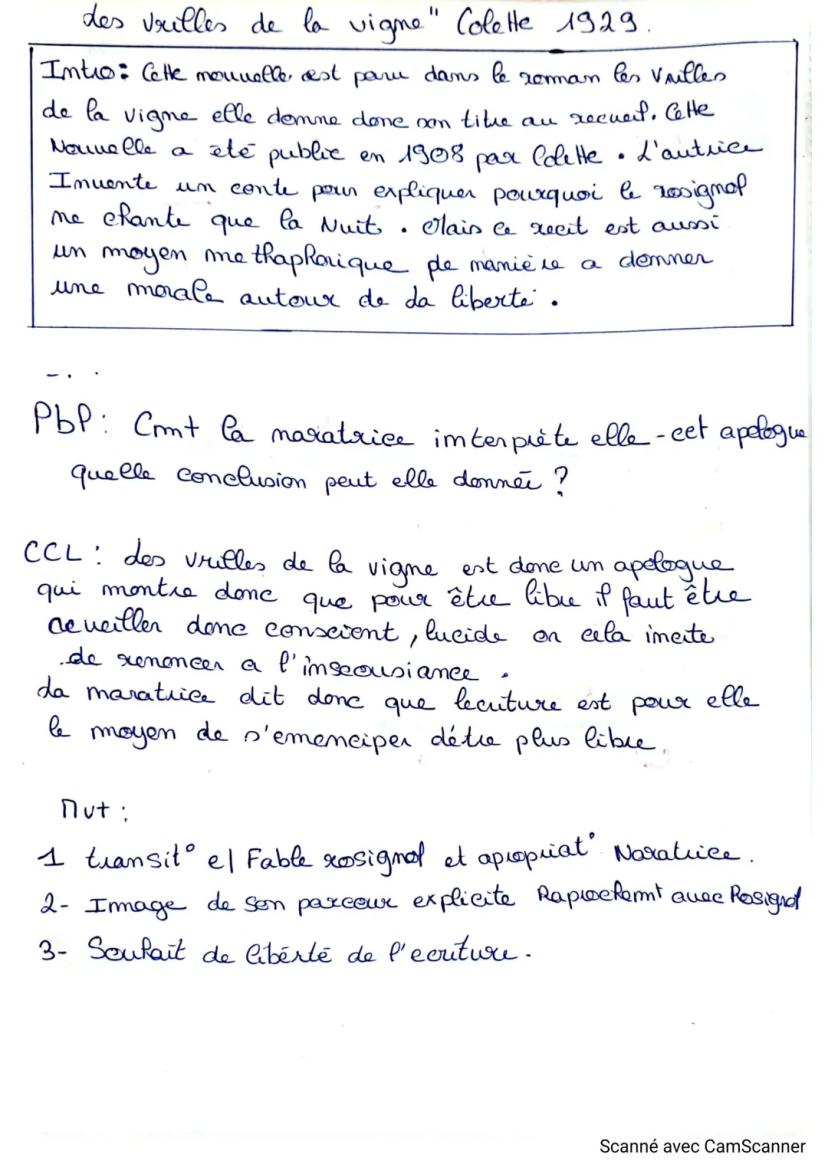 des vrilles de la vigne" Colette 1929.
Intro: Cette nouvelle est paru dans le roman les Vrilles
de la vigne elle donne donc son titre au recueil. Cette
Nouvelle a été publié en 1908 par Colette. L'autrice
Invente un conte pour expliquer pourquoi le rosignol
ne chante que la Nuit. Mais ce recit est aussi
un moyen methaphorique de manière a donner
une morale autour de la liberté.
Pbp: Cmnt la naratrice interprète elle-cet apologue
quelle conclusion peut elle donnée ?
CCL: des vrilles de la vigne est donc un apologue
qui montre donc que pour être libre il faut être
donc conscient, lucide or cela incite
de renoncer a l'insousiance.
la naratrice dit donc que lecriture est pour elle
le moyen de s'emenciper détre plus libre.
Mvt:
1 transit° e/ Fable rosignol et apropriat° Naratrice.
2- Image de son parcour explicite Raprochemt avec Rosignol
3- Souhait de libérté de l'ecriture.
Scanné avec CamScanner